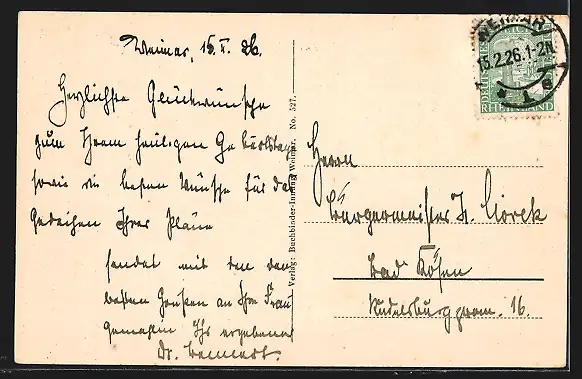 Weimar, 15. II. 26.
Herzlichste Glückwünsche
zum Ihrem heutigen Geburtstag
sowie die besten Wünsche für das
Gedeihen Ihrer Pläne
sendet mit den
besten Grüßen an Ihre Frau
Gemahlin Ihr ergebener
Dr.
Verlag: Buchbinder-Innung Weimar. No. 527.
WEIMAR
15.2.26.1-2N
1
DEUTSCHES
RHEINLAND
Herrn
Bürgermeister H.
Bad Kösen
Rudelsburgprom. 16.